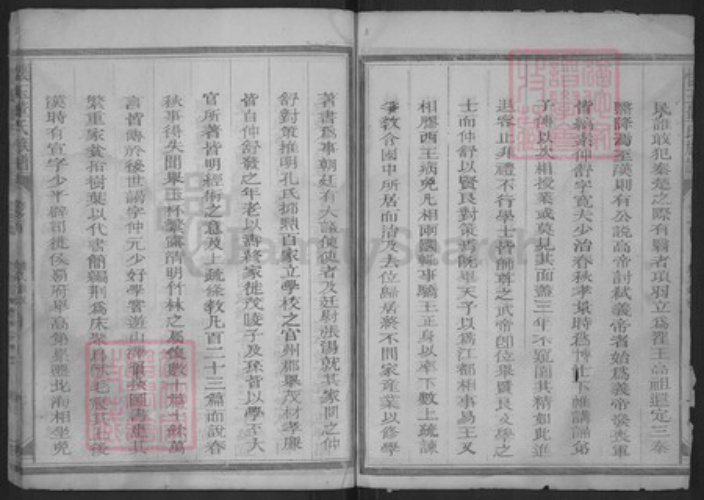 民誰敢犯秦楚之際有翳者項羽立為翟王高祖還定三秦
翳降焉至漢則有公說高帝討弑義帝者始為義帝發喪軍
皆縞素仲舒字寬夫少治春秋孝景時為博士下帷講誦弟
子傳以久相授業或莫見其面蓋三年不窺園其精如此進
退容止非禮不行學士皆師尊之武帝即位舉賢良文學之
士而仲舒以賢良對策焉既畢天子以為江都相事易王又
相膠西王病免凡相兩國輒事驕王正身以率下數上疏諫
爭教令國中所居而治及去位歸居終不問家產業以修學
著書為事朝廷有大議使使者及廷尉張湯就其家問之仲
舒對策推明孔氏抑黜百家立學校之官州郡舉茂材孝廉
皆自仲舒發之年老以壽終家徙茂陵子及孫皆以學至大
官所著皆明經術之意及上疏條教凡百二十三篇而說春
秋事得失聞舉玉杯繁露清明竹林之屬復數十篇十餘萬
言皆傳於後世謁字仲元少好學嘗遊山澤
繁重家貧拾樹葉以代書簡編荆為床聚鳥獸毛
漢時有宣字少平辟司徒侯霸府舉高第累遷北海相坐免